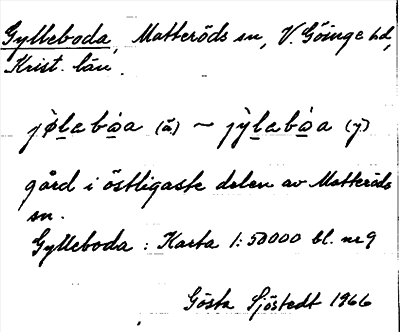 Gylleboda, Matteröds sn, V. Göinge hd,
Krist. län.
jø̀laba̠a (ä) ~ jỳlaba̠a (y)
gård i östligaste delen av Matteröds
sn.
Gylleboda : Karta 1:50000 bl. nr 9
Gösta Sjöstedt 1966